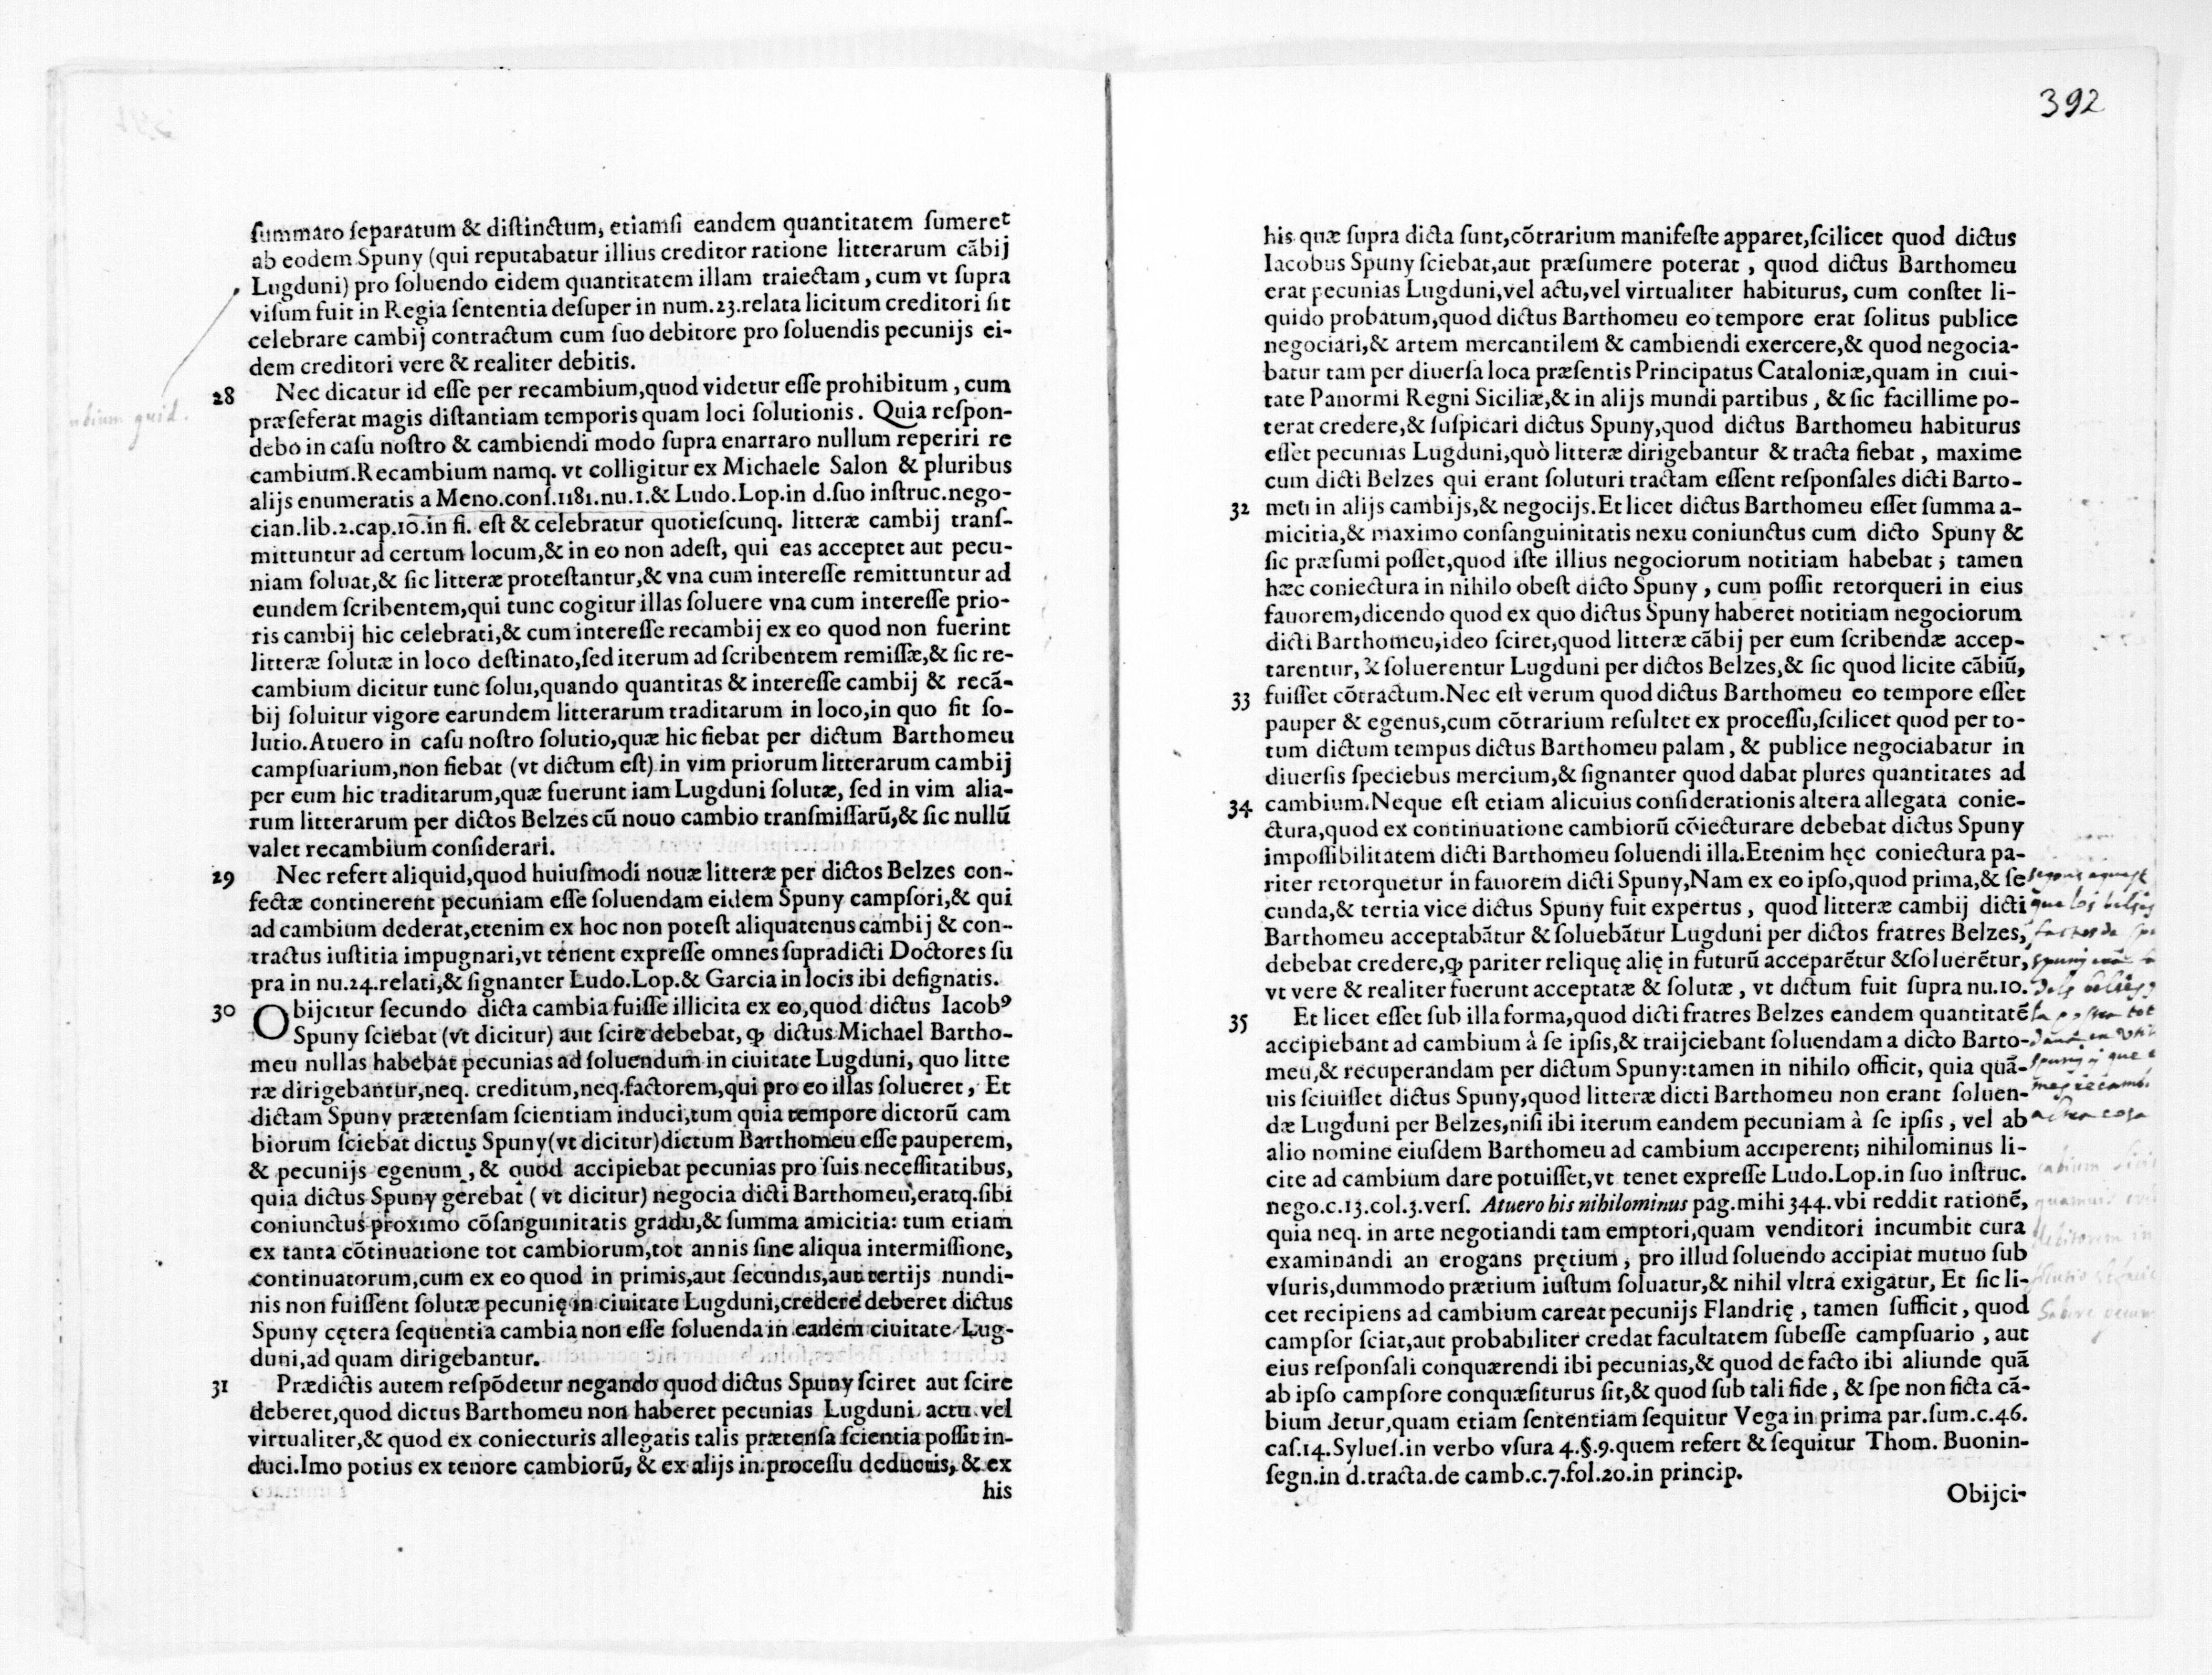 ſummato ſeparatum & diſtinctum, etiamſi eandem quantitatem ſumeret
ab eodem Spuny (qui reputabatur illius creditor ratione litterarum cãbij
Lugduni) pro ſoluendo eidem quantitatem illam traiectam, cum vt ſupra
viſum fuit in Regia ſententia deſuper in num.23.relata licitum creditori ſit
celebrare cambij contractum cum ſuo debitore pro ſoluendis pecunijs ei-
dem creditori vere & realiter debitis.
28 Nec dicatur id eſſe per recambium,quod videtur eſſe prohibitum , cum
præſeferat magis diſtantiam temporis quam loci ſolutionis. Quia reſpon-
debo in caſu noſtro & cambiendi modo ſupra enarraro nullum reperiri re
cambium.Recambium namq. vt colligitur ex Michaele Salon & pluribus
alijs enumeratis a Meno.conſ.1181.nu.1.& Ludo.Lop.in d.ſuo inſtruc.nego-
cian.lib.2.cap.10.in fi. eſt & celebratur quotieſcunq. litteræ cambij tranſ-
mittuntur ad certum locum,& in eo non adeſt, qui eas acceptet aut pecu-
niam ſoluat,& ſic litteræ proteſtantur,& vna cum intereſſe remittuntur ad
eundem ſcribentem,qui tunc cogitur illas ſoluere vna cum intereſſe prio-
ris cambij hic celebrati,& cum intereſſe recambij ex eo quod non fuerint
litteræ ſolutæ in loco deſtinato,ſed iterum ad ſcribentem remiſſæ,& ſic re-
cambium dicitur tunc ſolui,quando quantitas & intereſſe cambij & recã-
bij ſoluitur vigore earundem litterarum traditarum in loco,in quo ſit ſo-
lutio.Atuero in caſu noſtro ſolutio,quæ hic fiebat per dictum Barthomeu
campſuarium,non fiebat (vt dictum eſt) in vim priorum litterarum cambij
per eum hic traditarum,quæ fuerunt iam Lugduni ſolutæ, ſed in vim alia-
rum litterarum per dictos Belzes cũ nouo cambio tranſmiſſarũ,& ſic nullũ
valet recambium conſiderari.
29 Nec refert aliquid,quod huiuſmodi nouæ litteræ per dictos Belzes con-
fectæ continerent pecuniam eſſe ſoluendam eidem Spuny campſori,& qui
ad cambium dederat,etenim ex hoc non poteſt aliquatenus cambij & con-
tractus iuſtitia impugnari,vt tenent expreſſe omnes ſupradicti Doctores ſu
pra in nu.24.relati,& ſignanter Ludo.Lop.& Garcia in locis ibi deſignatis.
30 Obijcitur ſecundo dicta cambia fuiſſe illicita ex eo,quod dictus Iacobꝰ
Spuny ſciebat (vt dicitur) aut ſcire debebat, ꝙ dictus Michael Bartho-
meu nullas habebat pecunias ad ſoluendum in ciuitate Lugduni, quo litte
ræ dirigebantur,neq. creditum,neq.factorem,qui pro eo illas ſolueret, Et
dictam Spuny prætenſam ſcientiam induci,tum quia tempore dictorũ cam
biorum ſciebat dictus Spuny(vt dicitur)dictum Barthomeu eſſe pauperem,
& pecunijs egenum , & quod accipiebat pecunias pro ſuis neceſſitatibus,
quia dictus Spuny gerebat ( vt dicitur) negocia dicti Barthomeu,eratq.ſibi
coniunctus proximo cõſanguinitatis gradu,& ſumma amicitia: tum etiam
ex tanta cõtinuatione tot cambiorum,tot annis ſine aliqua intermiſſione,
continuatorum,cum ex eo quod in primis,aut ſecundis,aut tertijs nundi-
nis non fuiſſent ſolutæ pecunię in ciuitate Lugduni,credere deberet dictus
Spuny cętera ſequentia cambia non eſſe ſoluenda in eadem ciuitate Lug-
duni,ad quam dirigebantur.
31 Prædictis autem reſpõdetur negando quod dictus Spuny ſciret aut ſcire
deberet,quod dictus Barthomeu non haberet pecunias Lugduni actu vel
virtualiter,& quod ex coniecturis allegatis talis prætenſa ſcientia poſſit in-
duci.Imo potius ex tenore cambiorũ, & ex alijs in proceſſu deductis, & ex
his
392
his quæ ſupra dicta ſunt,cõtrarium manifeſte apparet,ſcilicet quod dictus
Iacobus Spuny ſciebat,aut præſumere poterat , quod dictus Barthomeu
erat pecunias Lugduni,vel actu,vel virtualiter habiturus, cum conſtet li-
quido probatum,quod dictus Barthomeu eo tempore erat ſolitus publice
negociari,& artem mercantilem & cambiendi exercere,& quod negocia-
batur tam per diuerſa loca præſentis Principatus Cataloniæ,quam in ciui-
tate Panormi Regni Siciliæ,& in alijs mundi partibus , & ſic facillime po-
terat credere,& ſuſpicari dictus Spuny,quod dictus Barthomeu habiturus
eſſet pecunias Lugduni,quò litteræ dirigebantur & tracta fiebat , maxime
cum dicti Belzes qui erant ſoluturi tractam eſſent reſponſales dicti Barto-
32 meu in alijs cambijs,& negocijs.Et licet dictus Barthomeu eſſet ſumma a-
micitia,& maximo conſanguinitatis nexu coniunctus cum dicto Spuny &
ſic præſumi poſſet,quod iſte illius negociorum notitiam habebat ; tamen
hæc coniectura in nihilo obeſt dicto Spuny , cum poſſit retorqueri in eius
fauorem,dicendo quod ex quo dictus Spuny haberet notitiam negociorum
dicti Barthomeu,ideo ſciret,quod litteræ cãbij per eum ſcribendæ accep-
tarentur, & ſoluerentur Lugduni per dictos Belzes,& ſic quod licite cãbiũ,
33 fuiſſet cõtractum.Nec eſt verum quod dictus Barthomeu eo tempore eſſet
pauper & egenus,cum cõtrarium reſultet ex proceſſu,ſcilicet quod per to-
tum dictum tempus dictus Barthomeu palam, & publice negociabatur in
diuerſis ſpeciebus mercium,& ſignanter quod dabat plures quantitates ad
34 cambium.Neque eſt etiam alicuius conſiderationis altera allegata conie-
ctura,quod ex continuatione cambiorũ cõiecturare debebat dictus Spuny
impoſſibilitatem dicti Barthomeu ſoluendi illa.Etenim hęc coniectura pa-
riter retorquetur in fauorem dicti Spuny,Nam ex eo ipſo,quod prima,& ſe
cunda,& tertia vice dictus Spuny fuit expertus , quod litteræ cambij dicti
Barthomeu acceptabãtur & ſoluebãtur Lugduni per dictos fratres Belzes,
debebat credere,ꝙ pariter reliquę alię in futurũ acceparẽtur &ſoluerẽtur,
vt vere & realiter fuerunt acceptatæ & ſolutæ , vt dictum fuit ſupra nu.10.
35 Et licet eſſet ſub illa forma,quod dicti fratres Belzes eandem quantitatẽ
accipiebant ad cambium à ſe ipſis,& traijciebant ſoluendam a dicto Barto-
meu,& recuperandam per dictum Spuny:tamen in nihilo officit, quia quã-
uis ſciuiſſet dictus Spuny,quod litteræ dicti Barthomeu non erant ſoluen-
dæ Lugduni per Belzes,niſi ibi iterum eandem pecuniam à ſe ipſis , vel ab
alio nomine eiuſdem Barthomeu ad cambium acciperent; nihilominus li-
cite ad cambium dare potuiſſet,vt tenet expreſſe Ludo.Lop.in ſuo inſtruc.
nego.c.13.col.3.verſ. Atuero his nihilominus pag.mihi 344.vbi reddit rationẽ,
quia neq. in arte negotiandi tam emptori,quam venditori incumbit cura
examinandi an erogans prętium , pro illud ſoluendo accipiat mutuo ſub
vſuris,dummodo prætium iuſtum ſoluatur,& nihil vltra exigatur, Et ſic li-
cet recipiens ad cambium careat pecunijs Flandrię , tamen ſufficit , quod
campſor ſciat,aut probabiliter credat facultatem ſubeſſe campſuario , aut
eius reſponſali conquærendi ibi pecunias,& quod de facto ibi aliunde quã
ab ipſo campſore conquæſiturus ſit,& quod ſub tali fide , & ſpe non ficta cã-
bium detur,quam etiam ſententiam ſequitur Vega in prima par.ſum.c.46.
caſ.14.Sylueſ.in verbo vſura 4.§.9.quem refert & ſequitur Thom. Buonin-
ſegn.in d.tracta.de camb.c.7.fol.20.in princip.
Obijci-